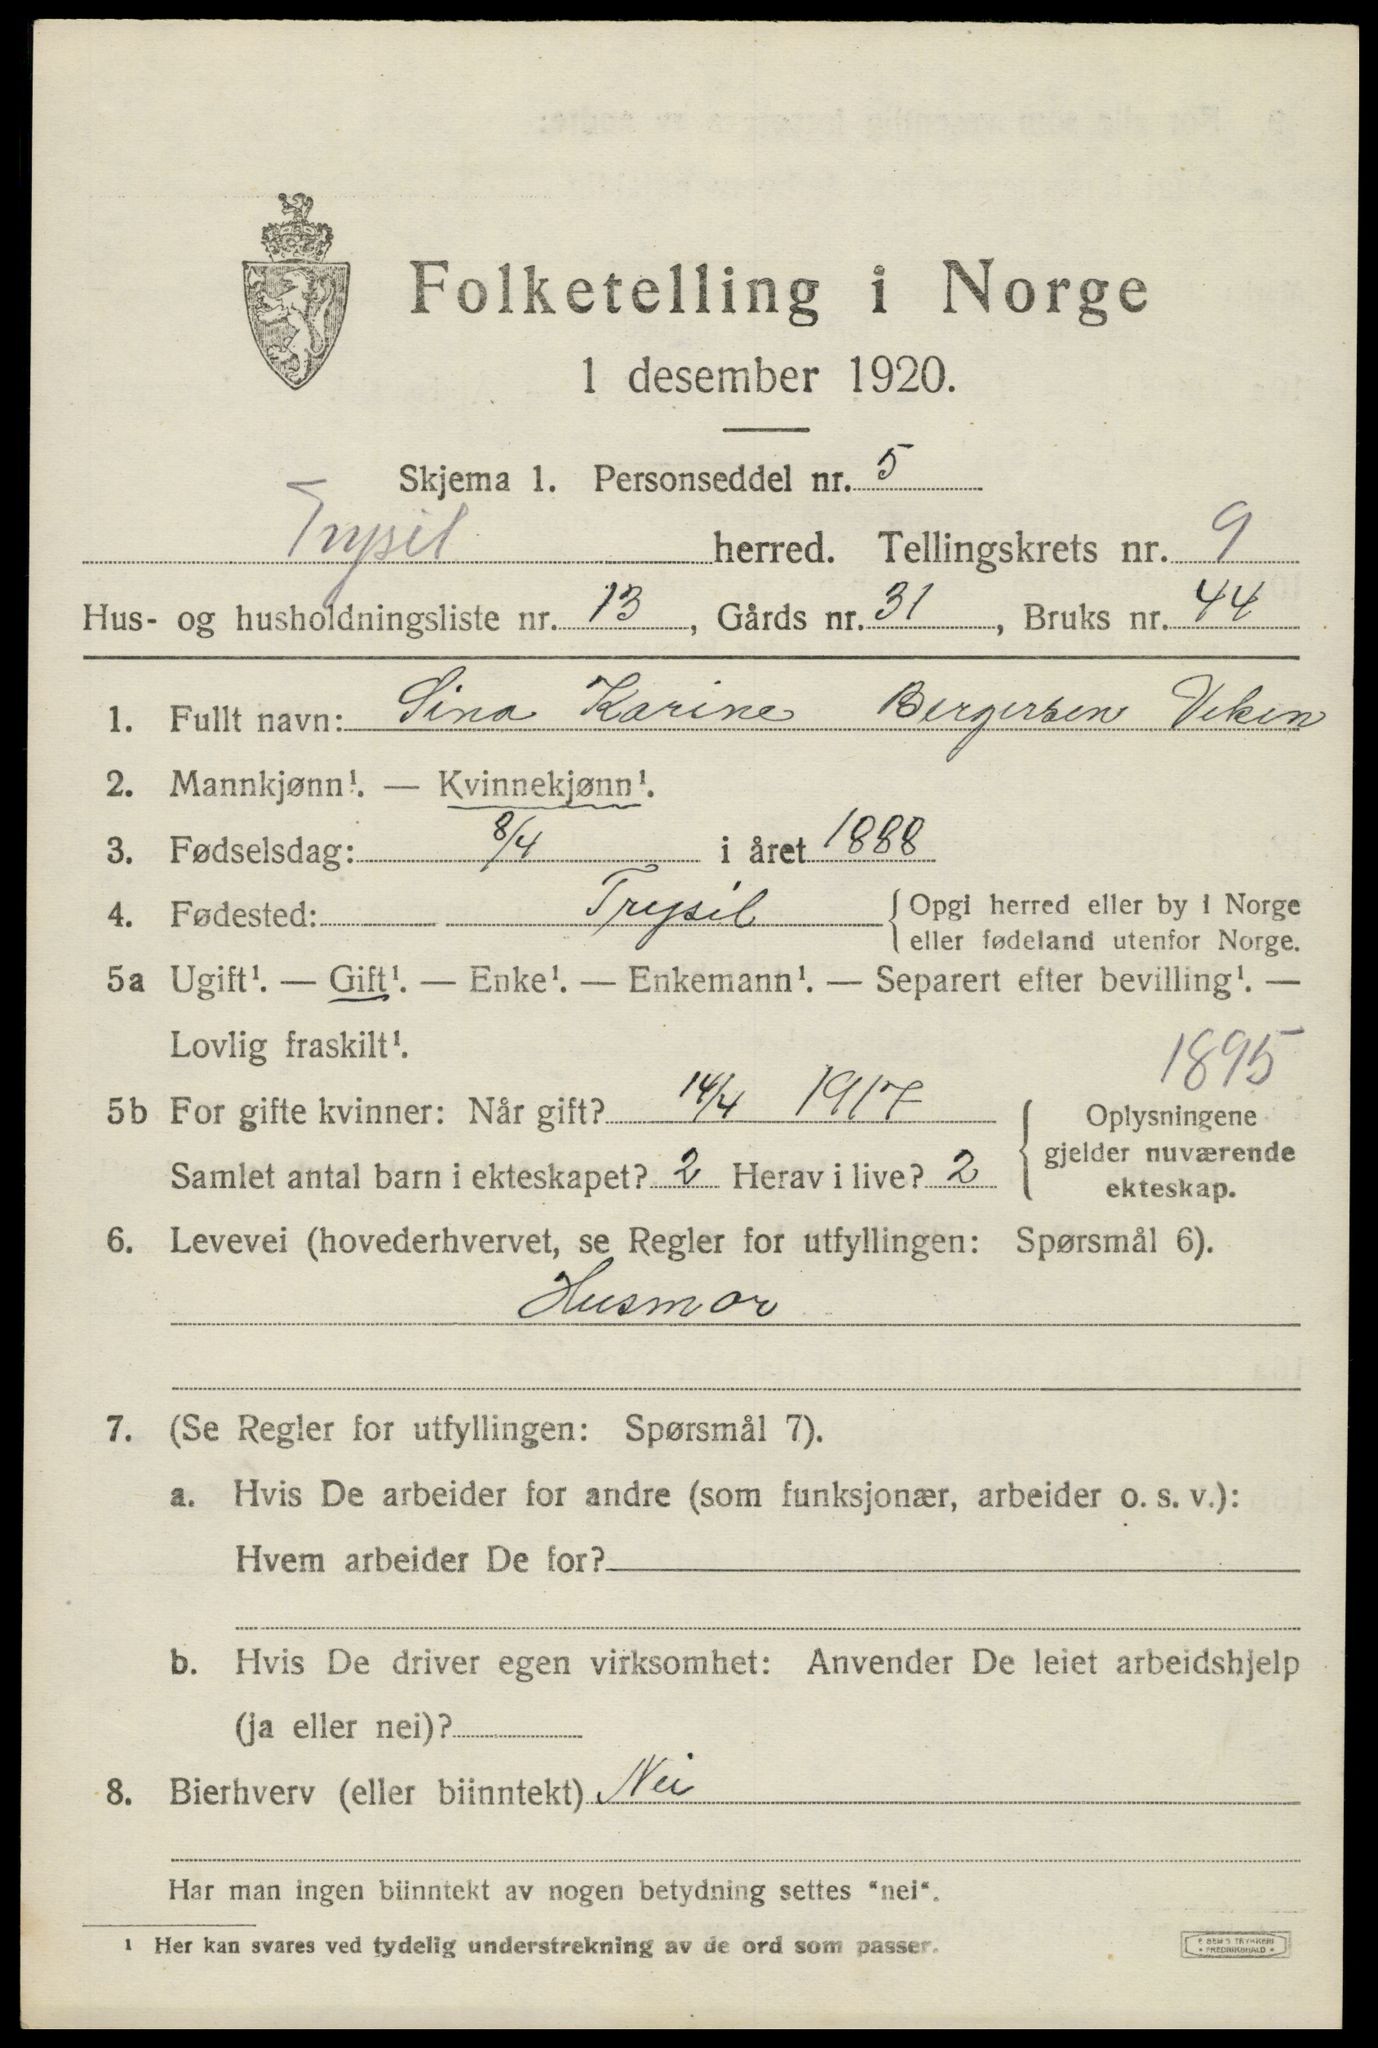 Folketelling i Norge
1 desember 1920.
Skjema 1. Personseddel nr. 5
Trysil herred. Tellingskrets nr. 9
Hus- og husholdningsliste nr. 13, Gårds nr. 31, Bruks nr. 44
1. Fullt navn: Sina Karine Bergersen Veken
2. Mannkjønn¹. — Kvinnekjønn¹.
3. Fødselsdag: 8/4 i året 1888
4. Fødested: Trysil { Opgi herred eller by i Norge
eller fødeland utenfor Norge.
5a Ugift¹. — Gift¹. — Enke¹. — Enkemann¹. — Separert efter bevilling¹. —
Lovlig fraskilt¹.
1895
5b For gifte kvinner: Når gift? 14/4 1917 { Oplysningene
gjelder nuværende
Samlet antal barn i ekteskapet? 2 Herav i live? 2
ekteskap.
6. Levevei (hovederhvervet, se Regler for utfyllingen: Spørsmål 6).
Husmor
7. (Se Regler for utfyllingen: Spørsmål 7).
a. Hvis De arbeider for andre (som funksjonær, arbeider o. s. v.):
Hvem arbeider De for?
b. Hvis De driver egen virksomhet: Anvender De leiet arbeidshjelp
(ja eller nei)?
8. Bierhverv (eller biinntekt) Nei
Har man ingen biinntekt av nogen betydning settes "nei".
¹ Her kan svares ved tydelig understrekning av de ord som passer.
E SEM'S TRYKKERI
• FREDRIKSHALD •